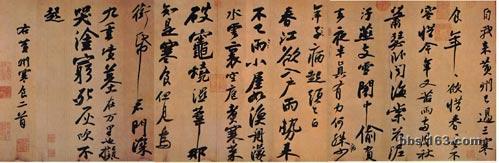 自我來黃州已過三寒
食年年欲惜春春去不
容惜今年又苦雨兩月秋
蕭瑟臥聞海棠花泥
汙燕支雪闇中偷負
去夜半真有力何殊少
年子病起頭已白
春江欲入戶雨勢來
不已雨小屋如漁舟濛濛
水雲裏空庖煮寒菜
破竈燒濕葦那
知是寒食但見烏
銜帋君門深
九重墳墓在万里也擬
哭塗窮死灰吹不
起
右黃州寒食二首
bbs.163.com